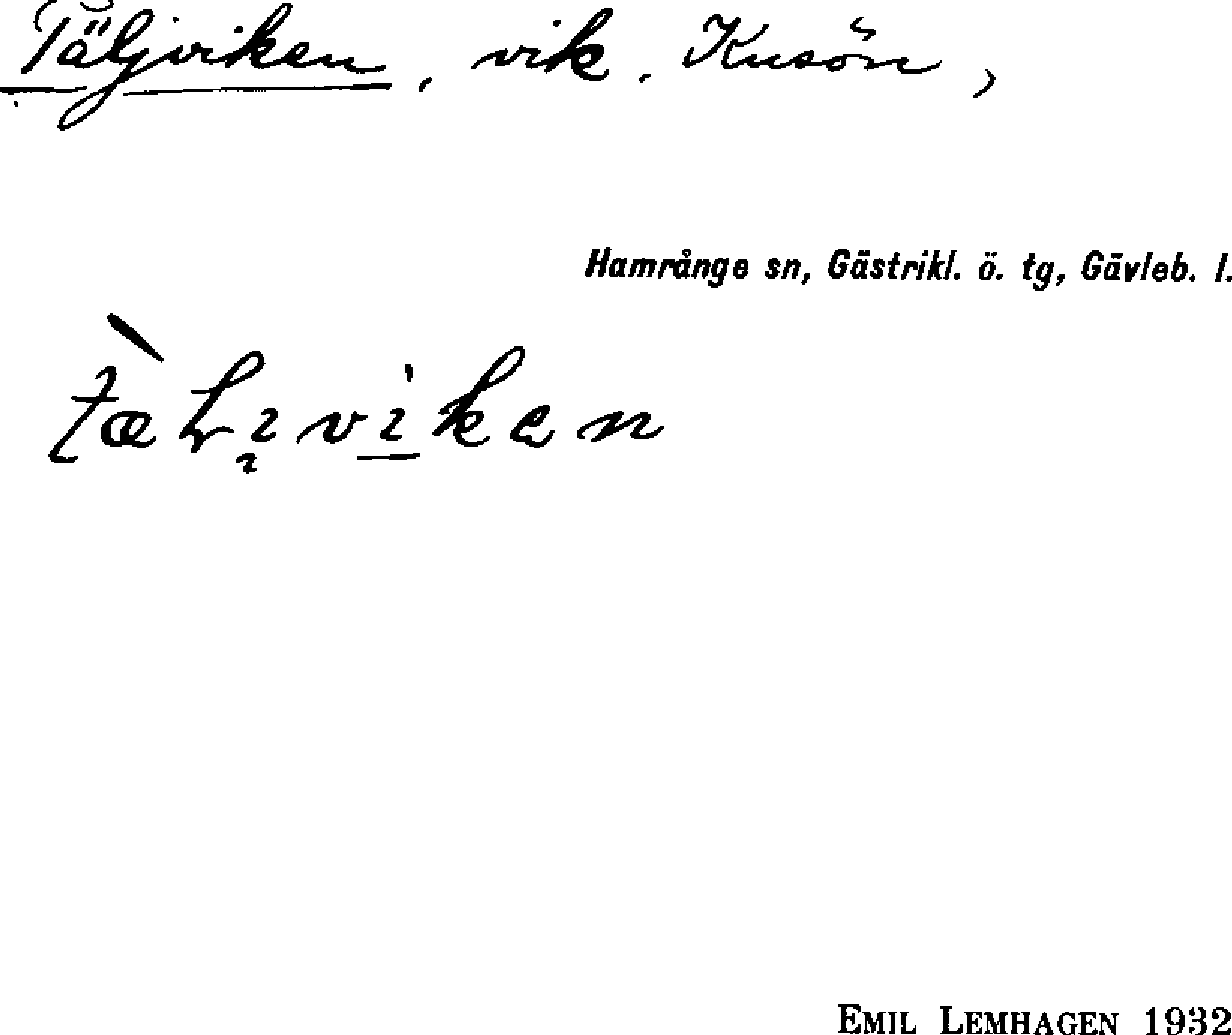 Täljviken, vik. Kusön,
Hamrånge sn, Gästrikl. ö. tg, Gävleb. l.
EMIL LEMHAGEN 1932